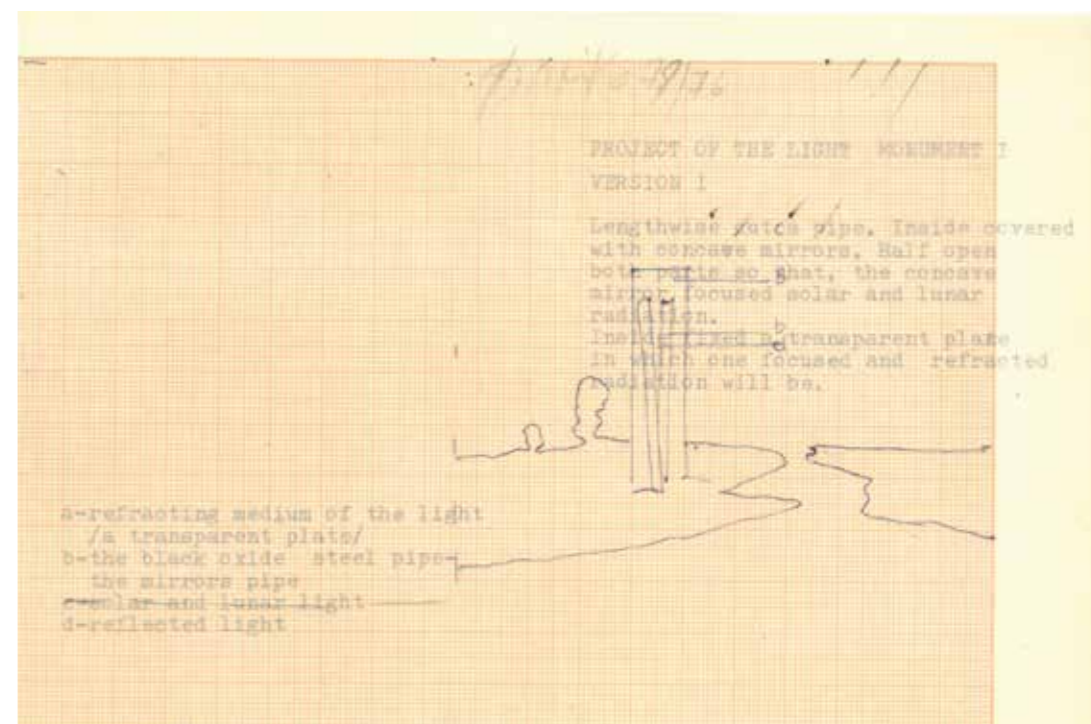 PROJECT OF THE LIGHT MONUMENT I
VERSION 1
Lengthwise pipe. Inside covered
with concave mirrors. Half open
both parts so that, the concave
mirror focused solar and lunar
radiation.
Inside fixed a transparent plate
in which one focused and refracted
radiation will be.
b
b
a
a-refracting medium of the light
/a transparent plate/
b-the black oxide steel pipe-
the mirrors pipe
c-solar and lunar light
d-reflected light